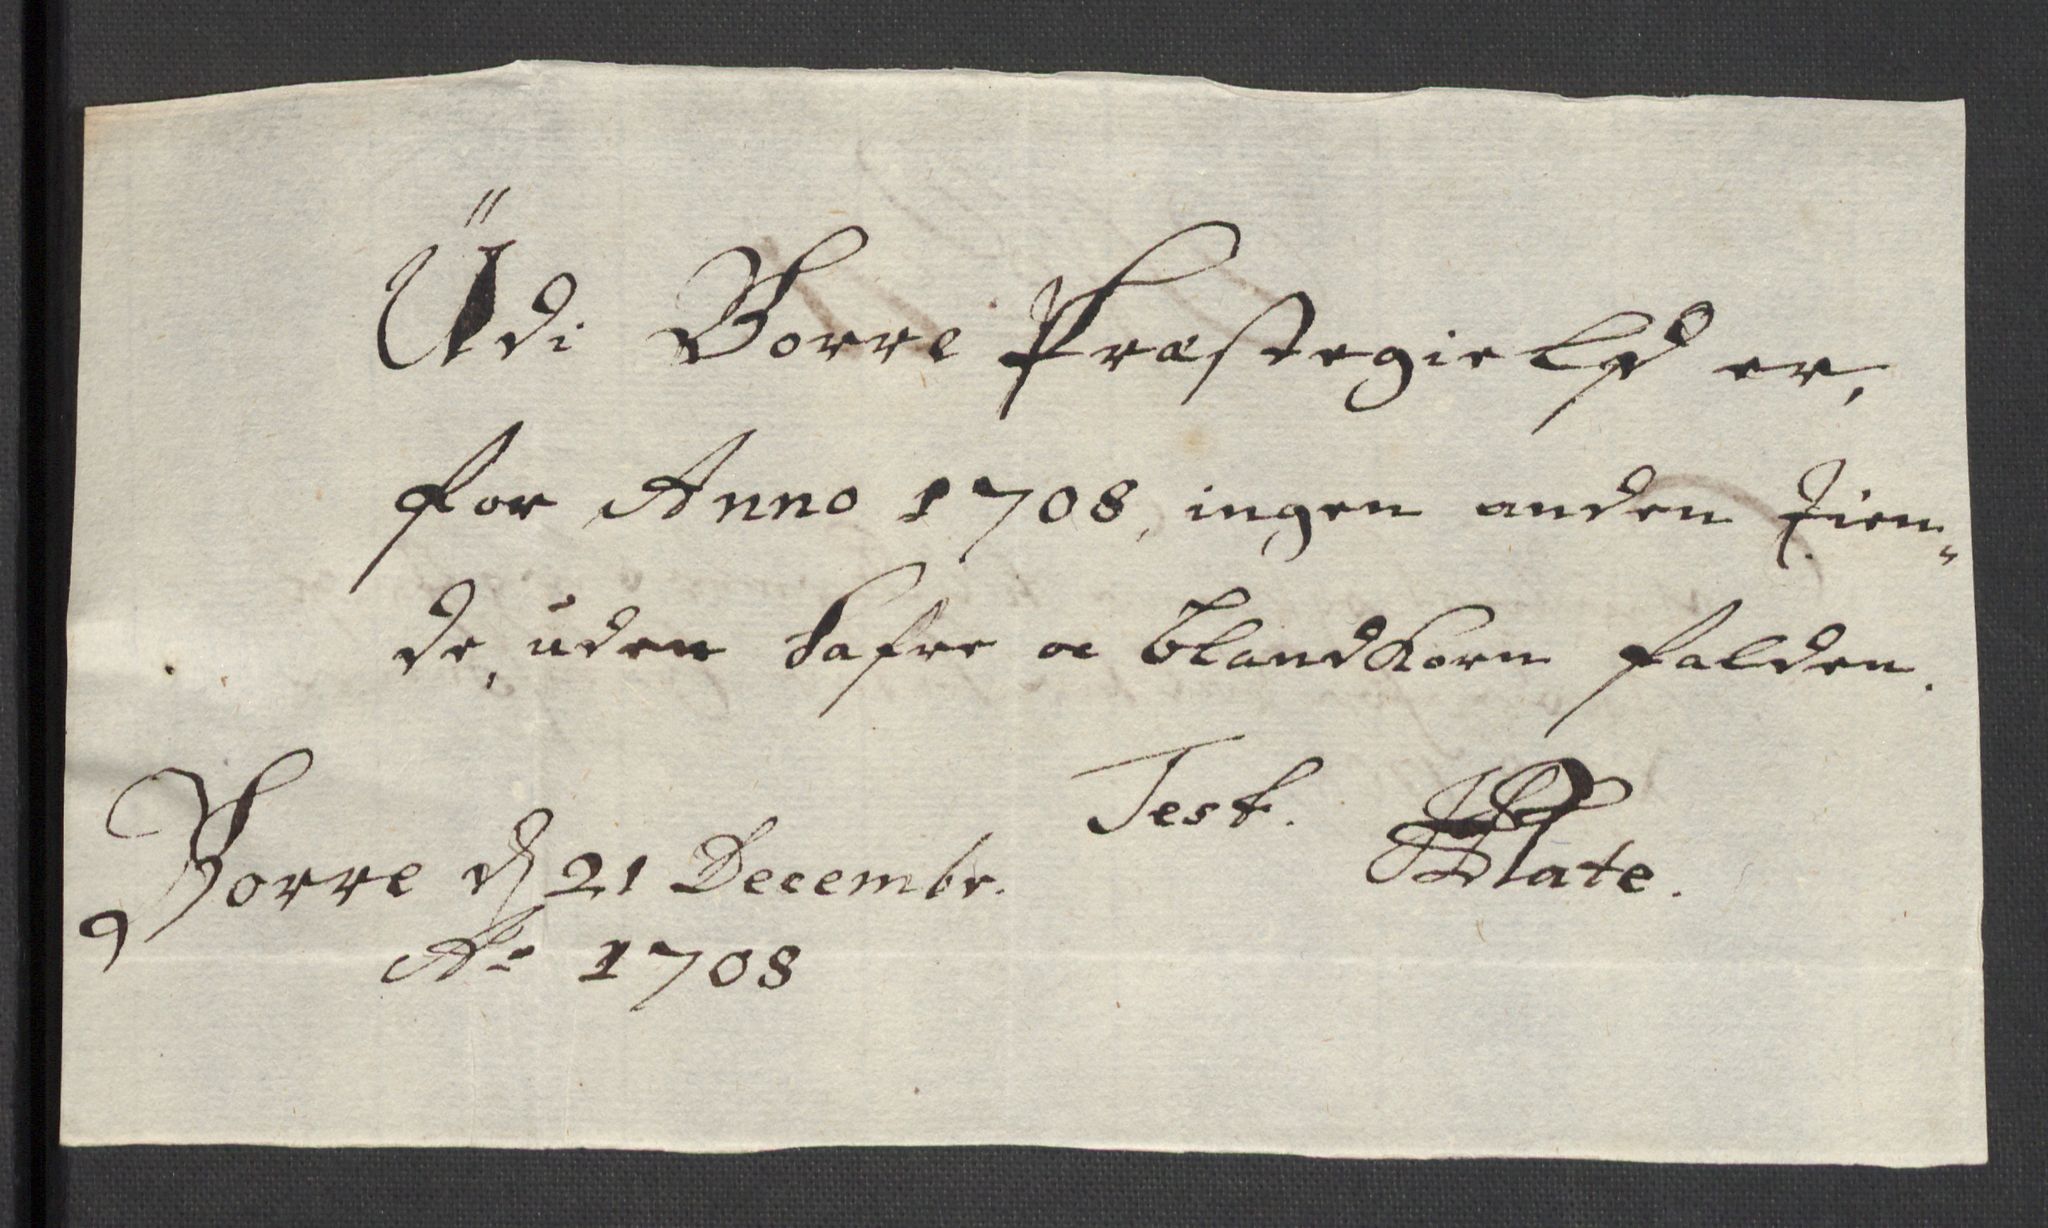 Udi Borre Præstegield er,
for Anno 1708, ingen anden Tien„
de, uden Hafre oc blandKorn falden.
Test. Plate.
Borre d 21 Decembr.
Ao 1708